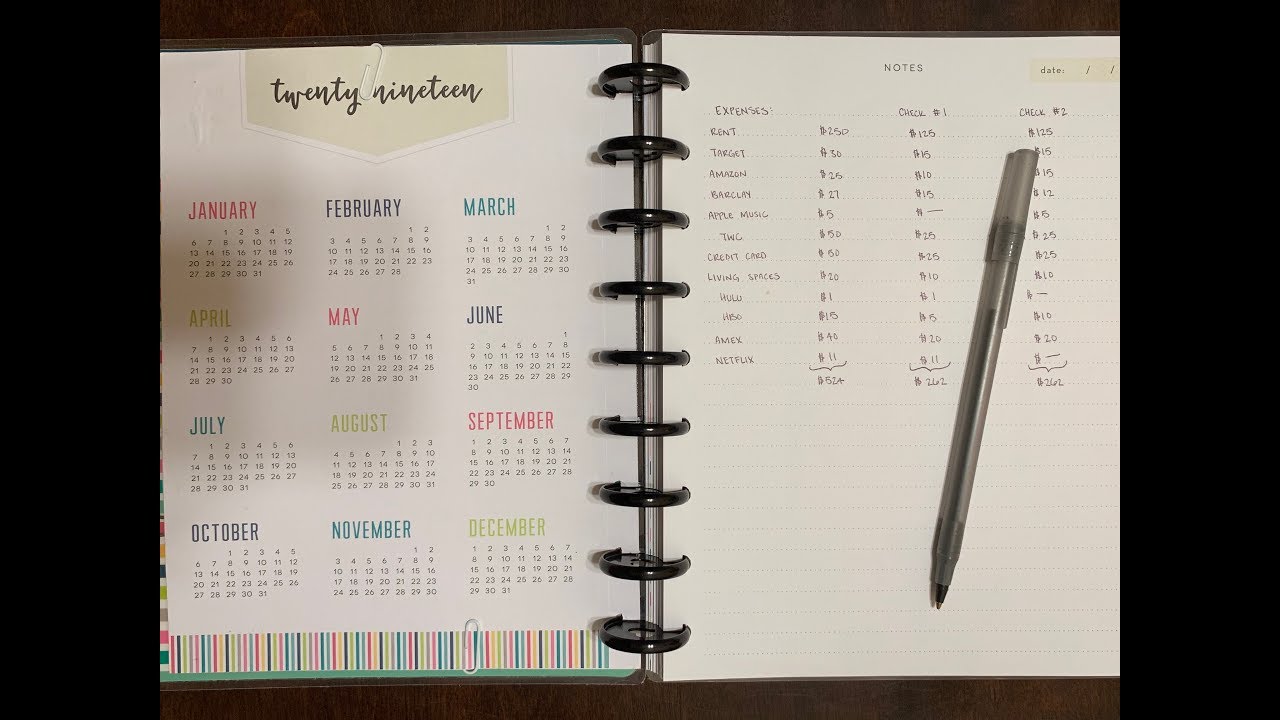 twenty nineteen
JANUARY
1 2 3 4 5
6 7 8 9 10 11 12
13 14 15 16 17 18 19
20 21 22 23 24 25 26
27 28 29 30 31
FEBRUARY
1 2
3 4 5 6 7 8 9
10 11 12 13 14 15 16
17 18 19 20 21 22 23
24 25 26 27 28
MARCH
1 2
3 4 5 6 7 8 9
10 11 12 13 14 15 16
17 18 19 20 21 22 23
24 25 26 27 28 29 30
31
APRIL
1 2 3 4 5 6
7 8 9 10 11 12 13
14 15 16 17 18 19 20
21 22 23 24 25 26 27
28 29 30
MAY
1 2 3 4
5 6 7 8 9 10 11
12 13 14 15 16 17 18
19 20 21 22 23 24 25
26 27 28 29 30 31
JUNE
1
2 3 4 5 6 7 8
9 10 11 12 13 14 15
16 17 18 19 20 21 22
23 24 25 26 27 28 29
30
JULY
1 2 3 4 5 6
7 8 9 10 11 12 13
14 15 16 17 18 19 20
21 22 23 24 25 26 27
28 29 30 31
AUGUST
1 2 3
4 5 6 7 8 9 10
11 12 13 14 15 16 17
18 19 20 21 22 23 24
25 26 27 28 29 30 31
SEPTEMBER
1 2 3 4 5 6 7
8 9 10 11 12 13 14
15 16 17 18 19 20 21
22 23 24 25 26 27 28
29 30
OCTOBER
1 2 3 4 5
6 7 8 9 10 11 12
13 14 15 16 17 18 19
20 21 22 23 24 25 26
27 28 29 30 31
NOVEMBER
1 2
3 4 5 6 7 8 9
10 11 12 13 14 15 16
17 18 19 20 21 22 23
24 25 26 27 28 29 30
DECEMBER
1 2 3 4 5 6 7
8 9 10 11 12 13 14
15 16 17 18 19 20 21
22 23 24 25 26 27 28
29 30 31
NOTES
date: / /
EXPENSES: CHECK #1 CHECK #2
RENT $250 $125 $125
TARGET $30 $15 $15
AMAZON $25 $10 $15
BARCLAY $27 $15 $12
APPLE MUSIC $5 $— $5
TWC $50 $25 $25
CREDIT CARD $50 $25 $25
LIVING SPACES $20 $10 $10
HULU $1 $1 $—
HBO $15 $5 $10
AMEX $40 $20 $20
NETFLIX $11 $11 $—
$524 $262 $262